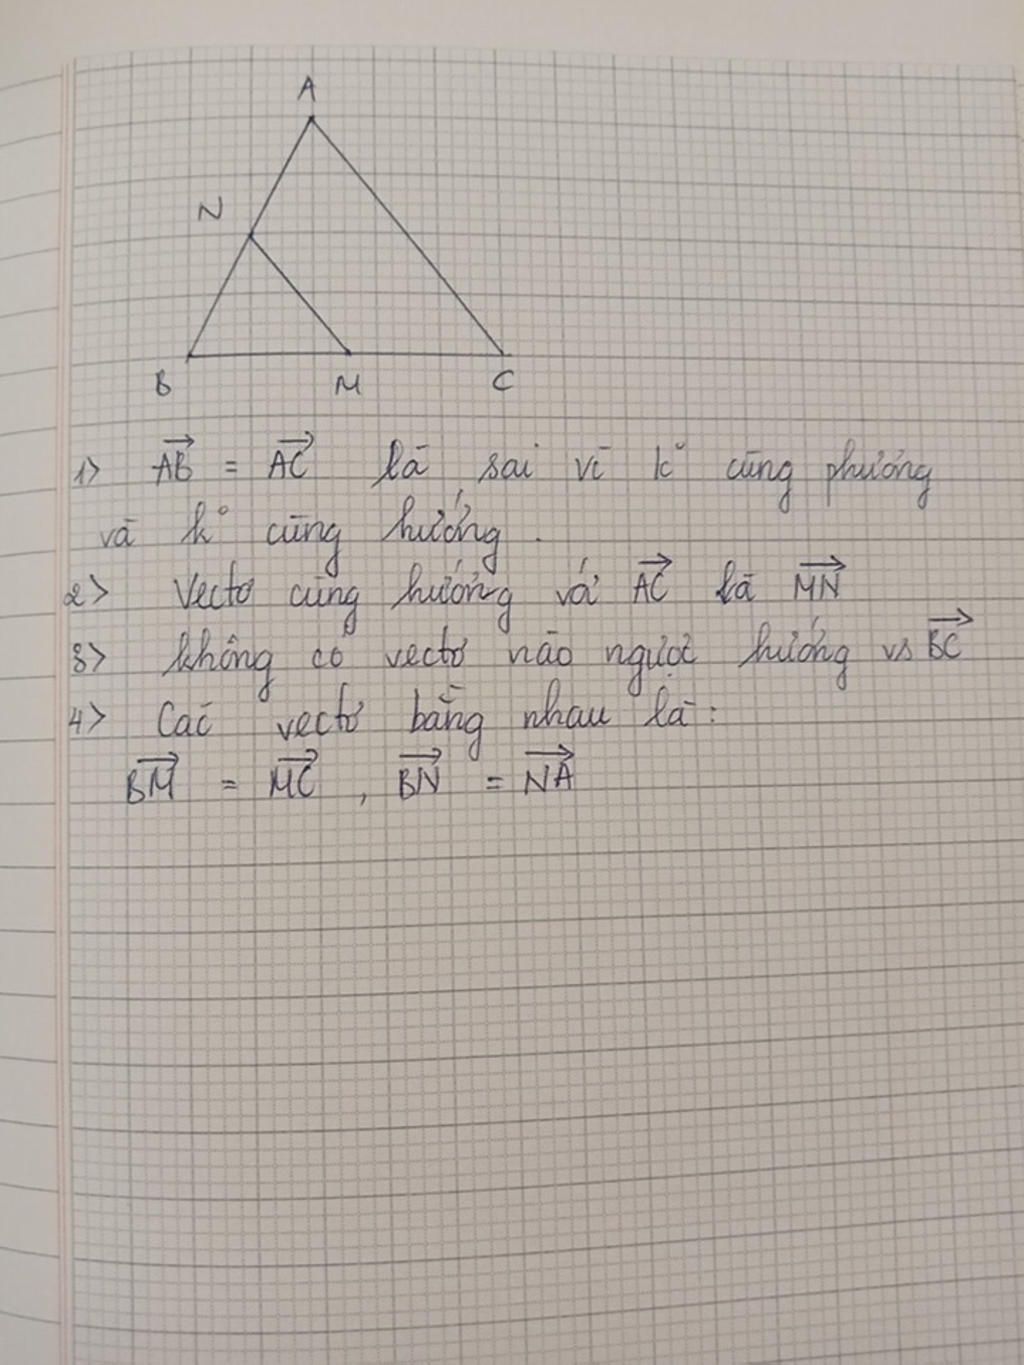 A
N
B M C
1> AB = AC là sai vì k° cùng phương
và k° cùng hướng.
2> Vectơ cùng hướng vá AC là MN
3> không có vectơ nào ngược hướng vs BC
4> Các vectơ bằng nhau là:
BM = MC , BN = NA